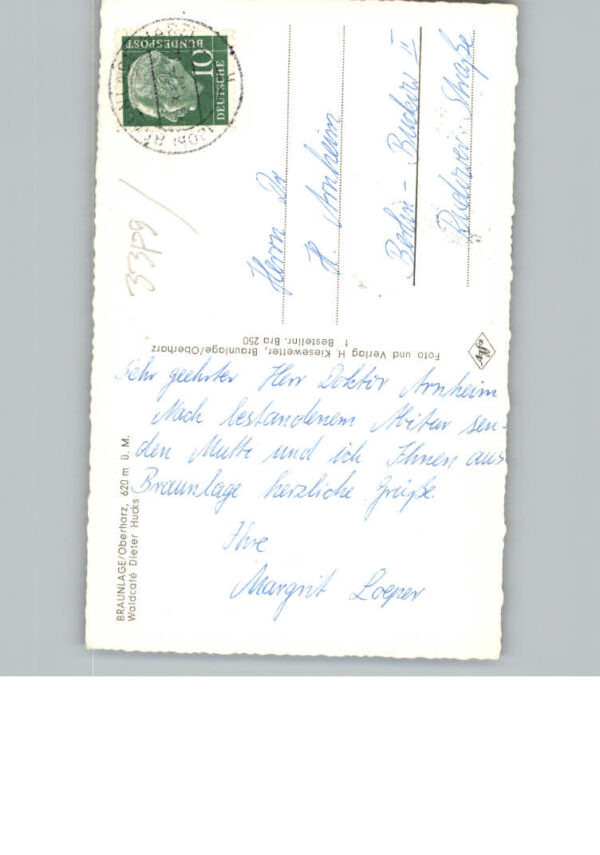 Sehr geehrter Herr Doktor Arnheim
Nach bestandenem Abitur sen-
den Mutti und ich Ihnen aus
Braunlage herzliche Grüße.
Ihre
Margrit Loeper
BRAUNLAGE/Oberharz, 620 m ü. M.
Waldcafé Dieter Hucks
Foto und Verlag H. Kiesewetter, Braunlage/Oberharz
1 Bestellnr. Bra 250
Herrn Dr
H. Arnheim
Berlin - Buckow II
Rudower Straße
DEUTSCHE
BUNDESPOST
10